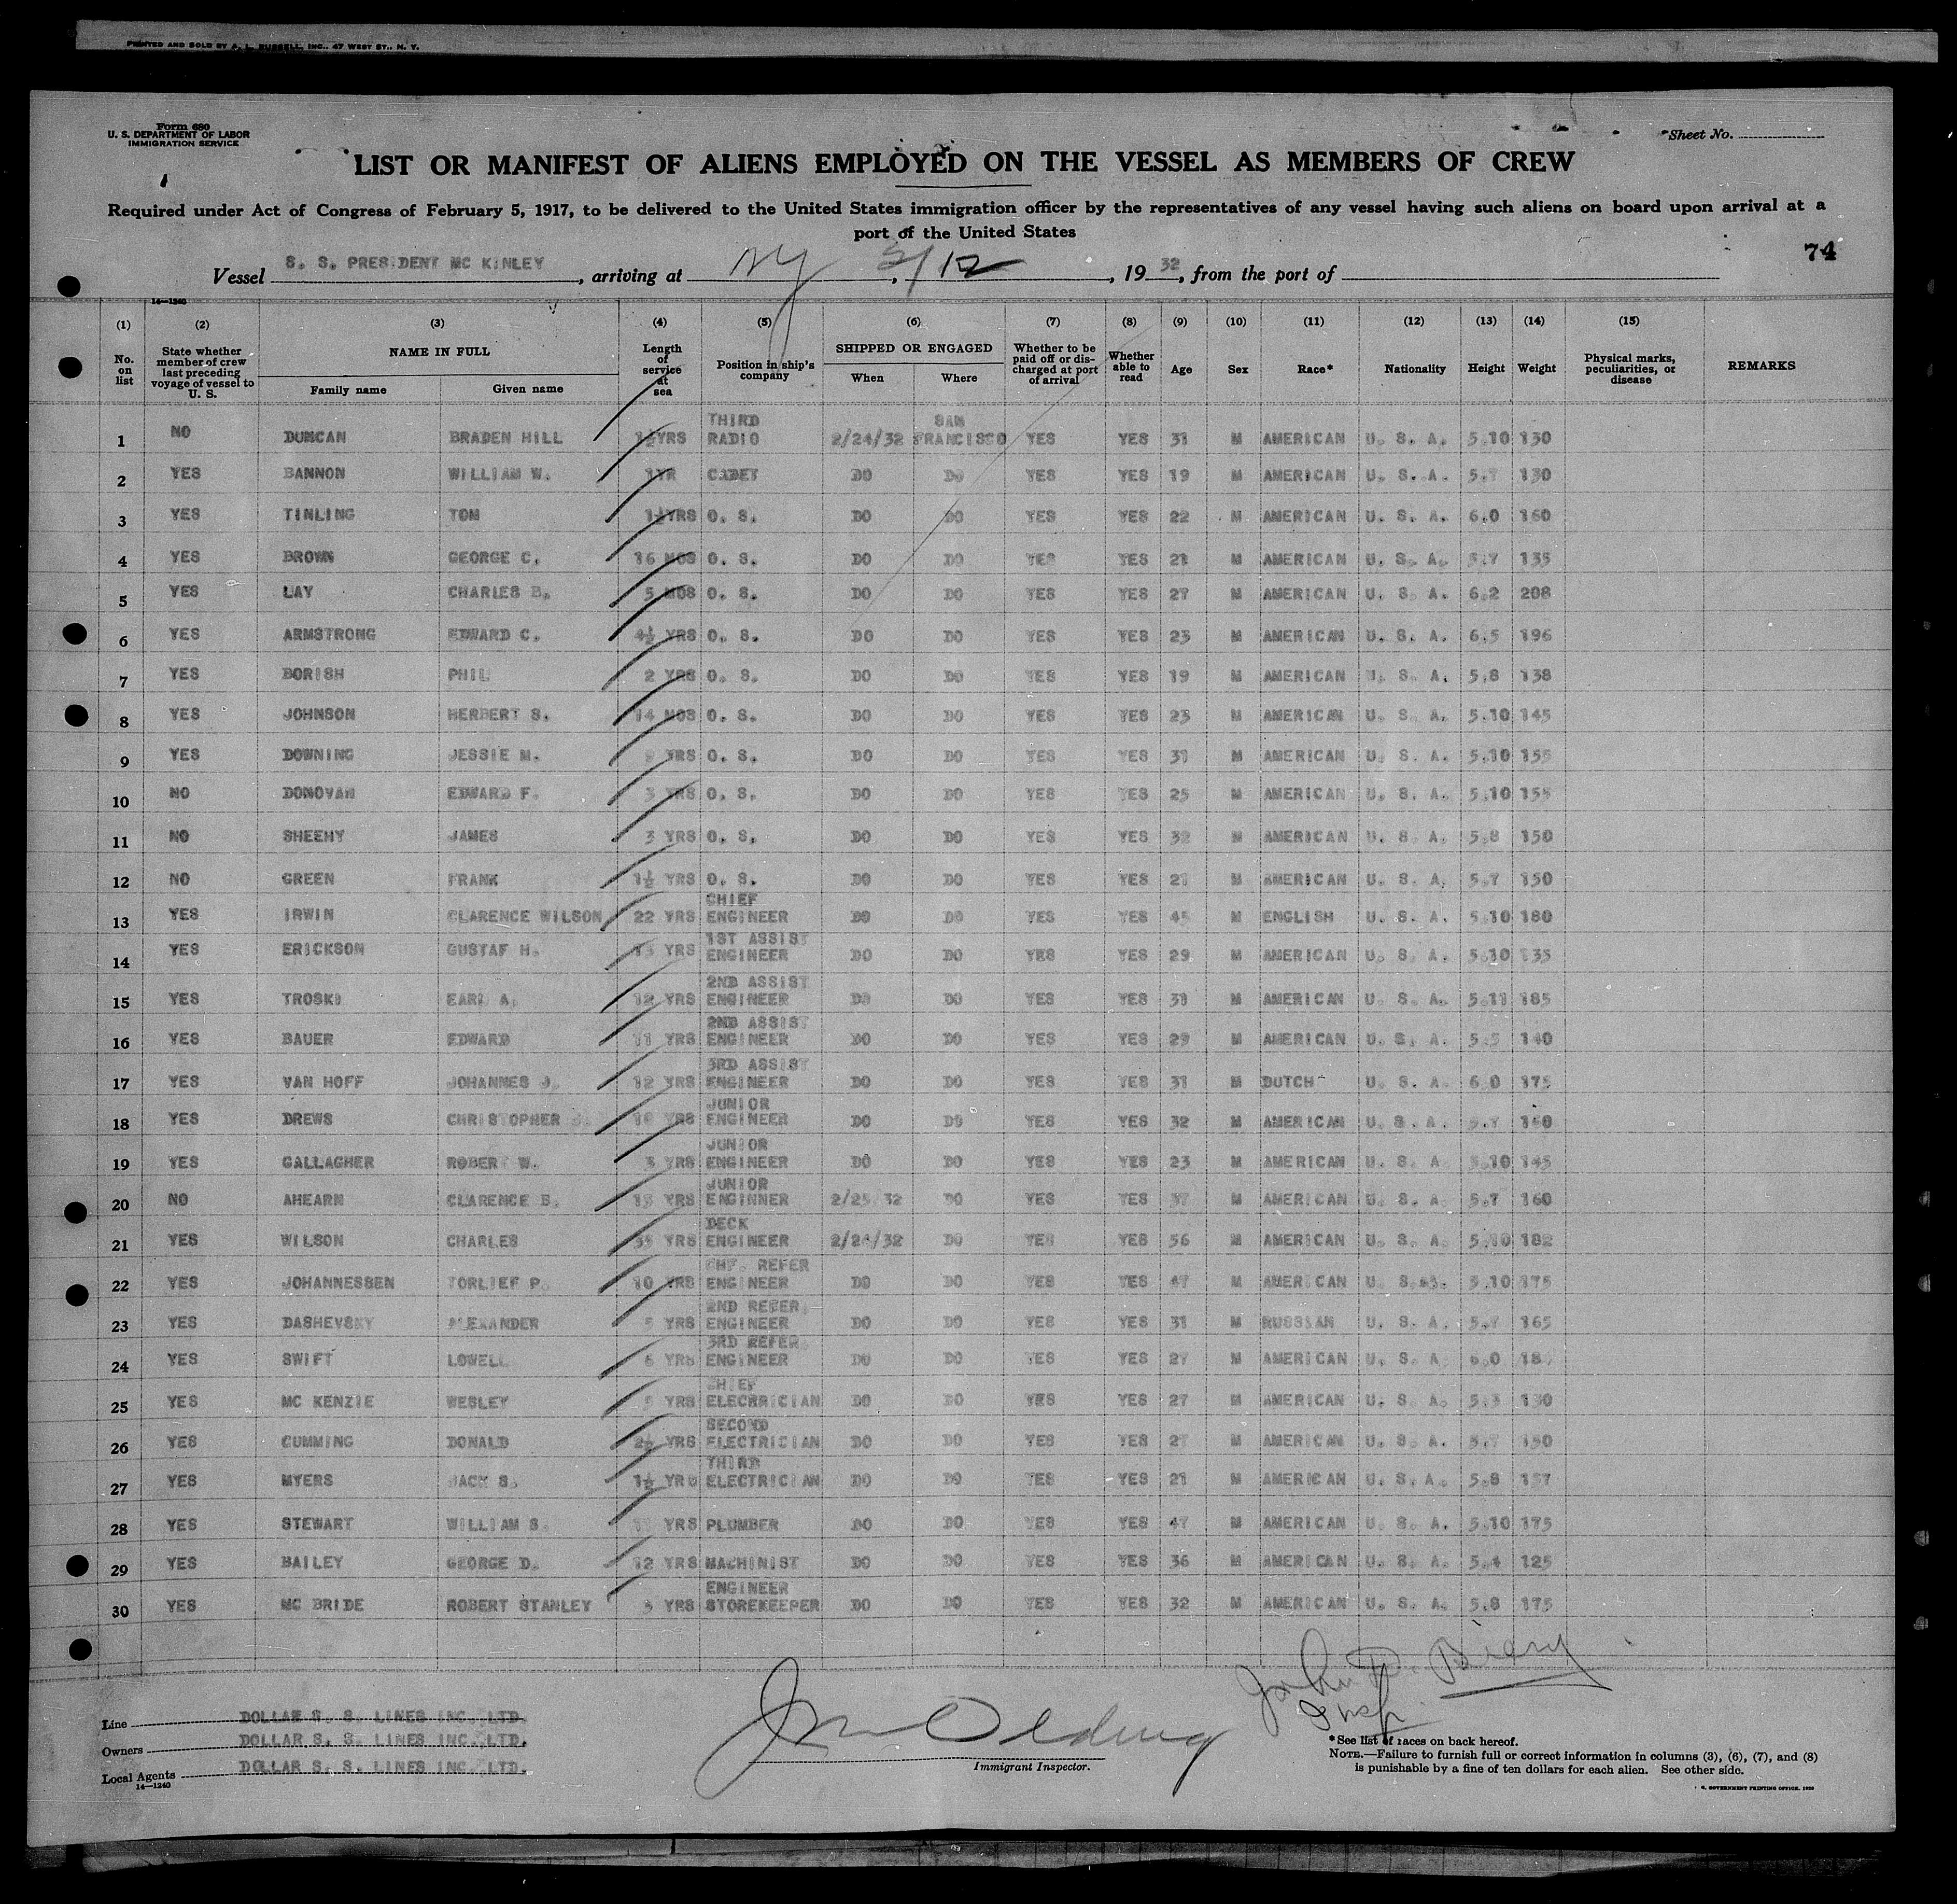 PRINTED AND SOLD BY A. L. RUSSELL, INC., 47 WEST ST., N. Y.
Form 680
U. S. DEPARTMENT OF LABOR
IMMIGRATION SERVICE
Sheet No.
LIST OR MANIFEST OF ALIENS EMPLOYED ON THE VESSEL AS MEMBERS OF CREW
Required under Act of Congress of February 5, 1917, to be delivered to the United States immigration officer by the representatives of any vessel having such aliens on board upon arrival at a
port of the United States
74
Vessel S. S. PRESIDENT MC KINLEY, arriving at NY, 3/12, 1932, from the port of
14—1240
(1) (2) (3) (4) (5) (6) (7) (8) (9) (10) (11) (12) (13) (14) (15)
No. on list State whether member of crew last preceding voyage of vessel to U. S. NAME IN FULL Family name Given name Length of service at sea Position in ship's company SHIPPED OR ENGAGED When Where Whether to be paid off or discharged at port of arrival Whether able to read Age Sex Race* Nationality Height Weight Physical marks, peculiarities, or disease REMARKS
1 NO DUNCAN BRADEN HILL 1½YRS THIRD RADIO 2/24/32 SAN FRANCISCO YES YES 31 M AMERICAN U. S. A. 5.10 130
2 YES BANNON WILLIAM W. 1YR CADET DO DO YES YES 19 M AMERICAN U. S. A. 5.7 130
3 YES TINLING TOM 1½YRS O. S. DO DO YES YES 22 M AMERICAN U. S. A. 6.0 160
4 YES BROWN GEORGE C. 16 MOS O. S. DO DO YES YES 21 M AMERICAN U. S. A. 5.7 135
5 YES LAY CHARLES B. 5 MOS O. S. DO DO YES YES 27 M AMERICAN U. S. A. 6.2 208
6 YES ARMSTRONG EDWARD C. 4½ YRS O. S. DO DO YES YES 23 M AMERICAN U. S. A. 6.5 196
7 YES BORISH PHIL 2 YRS O. S. DO DO YES YES 19 M AMERICAN U. S. A. 5.8 138
8 YES JOHNSON HERBERT S. 14 MOS O. S. DO DO YES YES 23 M AMERICAN U. S. A. 5.10 145
9 YES DOWNING JESSIE M. YRS O. S. DO DO YES YES 31 M AMERICAN U. S. A. 5.10 155
10 NO DONOVAN EDWARD F. 3 YRS O. S. DO DO YES YES 25 M AMERICAN U. S. A. 5.10 155
11 NO SHEEHY JAMES 3 YRS O. S. DO DO YES YES 32 M AMERICAN U. S. A. 5.8 150
12 NO GREEN FRANK 1½ YRS O. S. DO DO YES YES 21 M AMERICAN U. S. A. 5.7 150
13 YES IRWIN CLARENCE WILSON 22 YRS CHIEF ENGINEER DO DO YES YES 45 M ENGLISH U. S. A. 5.10 180
14 YES ERICKSON GUSTAF H. 13 YRS 1ST ASSIST ENGINEER DO DO YES YES 29 M AMERICAN U. S. A. 5.10 135
15 YES TROSKI EARL A. 12 YRS 2ND ASSIST ENGINEER DO DO YES YES 31 M AMERICAN U. S. A. 5.11 185
16 YES BAUER EDWARD 11 YRS 2ND ASSIST ENGINEER DO DO YES YES 29 M AMERICAN U. S. A. 5.5 140
17 YES VAN HOFF JOHANNES J. 12 YRS 3RD ASSIST ENGINEER DO DO YES YES 31 M DUTCH U. S. A. 6.0 175
18 YES DREWS CHRISTOPHER YRS JUNIOR ENGINEER DO DO YES YES 32 M AMERICAN U. S. A. 5.7
19 YES GALLAGHER ROBERT W. 3 YRS JUNIOR ENGINEER DO DO YES YES 23 M AMERICAN U. S. A 5.10 145
20 NO AHEARN CLARENCE B. YRS JUNIOR ENGINNER 2/25/32 DO YES YES 37 M AMERICAN U. S. A. 5.7 160
21 YES WILSON CHARLES 35 YRS DECK ENGINEER 2/24/32 DO YES YES 56 M AMERICAN U. S. A. 5.10 182
22 YES JOHANNESSEN TORLIEF P. 10 YRS CHF. REFER ENGINEER DO DO YES YES 47 M AMERICAN U. S. A. 5.10 175
23 YES DASHEVSKY ALEXANDER 5 YRS 2ND REFER. ENGINEER DO DO YES YES 31 M RUSSIAN U. S. A. 5.7 165
24 YES SWIFT LOWELL 6 YRS 3RD REFER. ENGINEER DO DO YES YES 27 M AMERICAN U. S. A 6.0
25 YES MC KENZIE WESLEY YRS CHIEF ELECHRICIAN DO DO YES YES 27 M AMERICAN U. S. A. 5.3 130
26 YES CUMMING DONALD 2½ YRS SECOND ELECTRICIAN DO DO YES YES 27 M AMERICAN U. S. A. 5.7 150
27 YES MYERS JACK S. 1½ YRS THIRD ELECTRICIAN DO DO YES YES 21 M AMERICAN U. S. A. 5.8 157
28 YES STEWART WILLIAM S. YRS PLUMBER DO DO YES YES 47 M AMERICAN U. S. A. 5.10 175
29 YES BAILEY GEORGE D. 12 YRS MACHINIST DO DO YES YES 36 M AMERICAN U. S. A. 5.4 125
30 YES MC BRIDE ROBERT STANLEY 3 YRS ENGINEER STOREKEEPER DO DO YES YES 32 M AMERICAN U. S. A. 5.8 175
John
Insp.
Line DOLLAR S. S. LINES INC. LTD.
Owners DOLLAR S. S. LINES INC. LTD.
Local Agents DOLLAR S. S. LINES INC. LTD.
14—1240
Immigrant Inspector.
*See list of races on back hereof.
NOTE.—Failure to furnish full or correct information in columns (3), (6), (7), and (8)
is punishable by a fine of ten dollars for each alien. See other side.